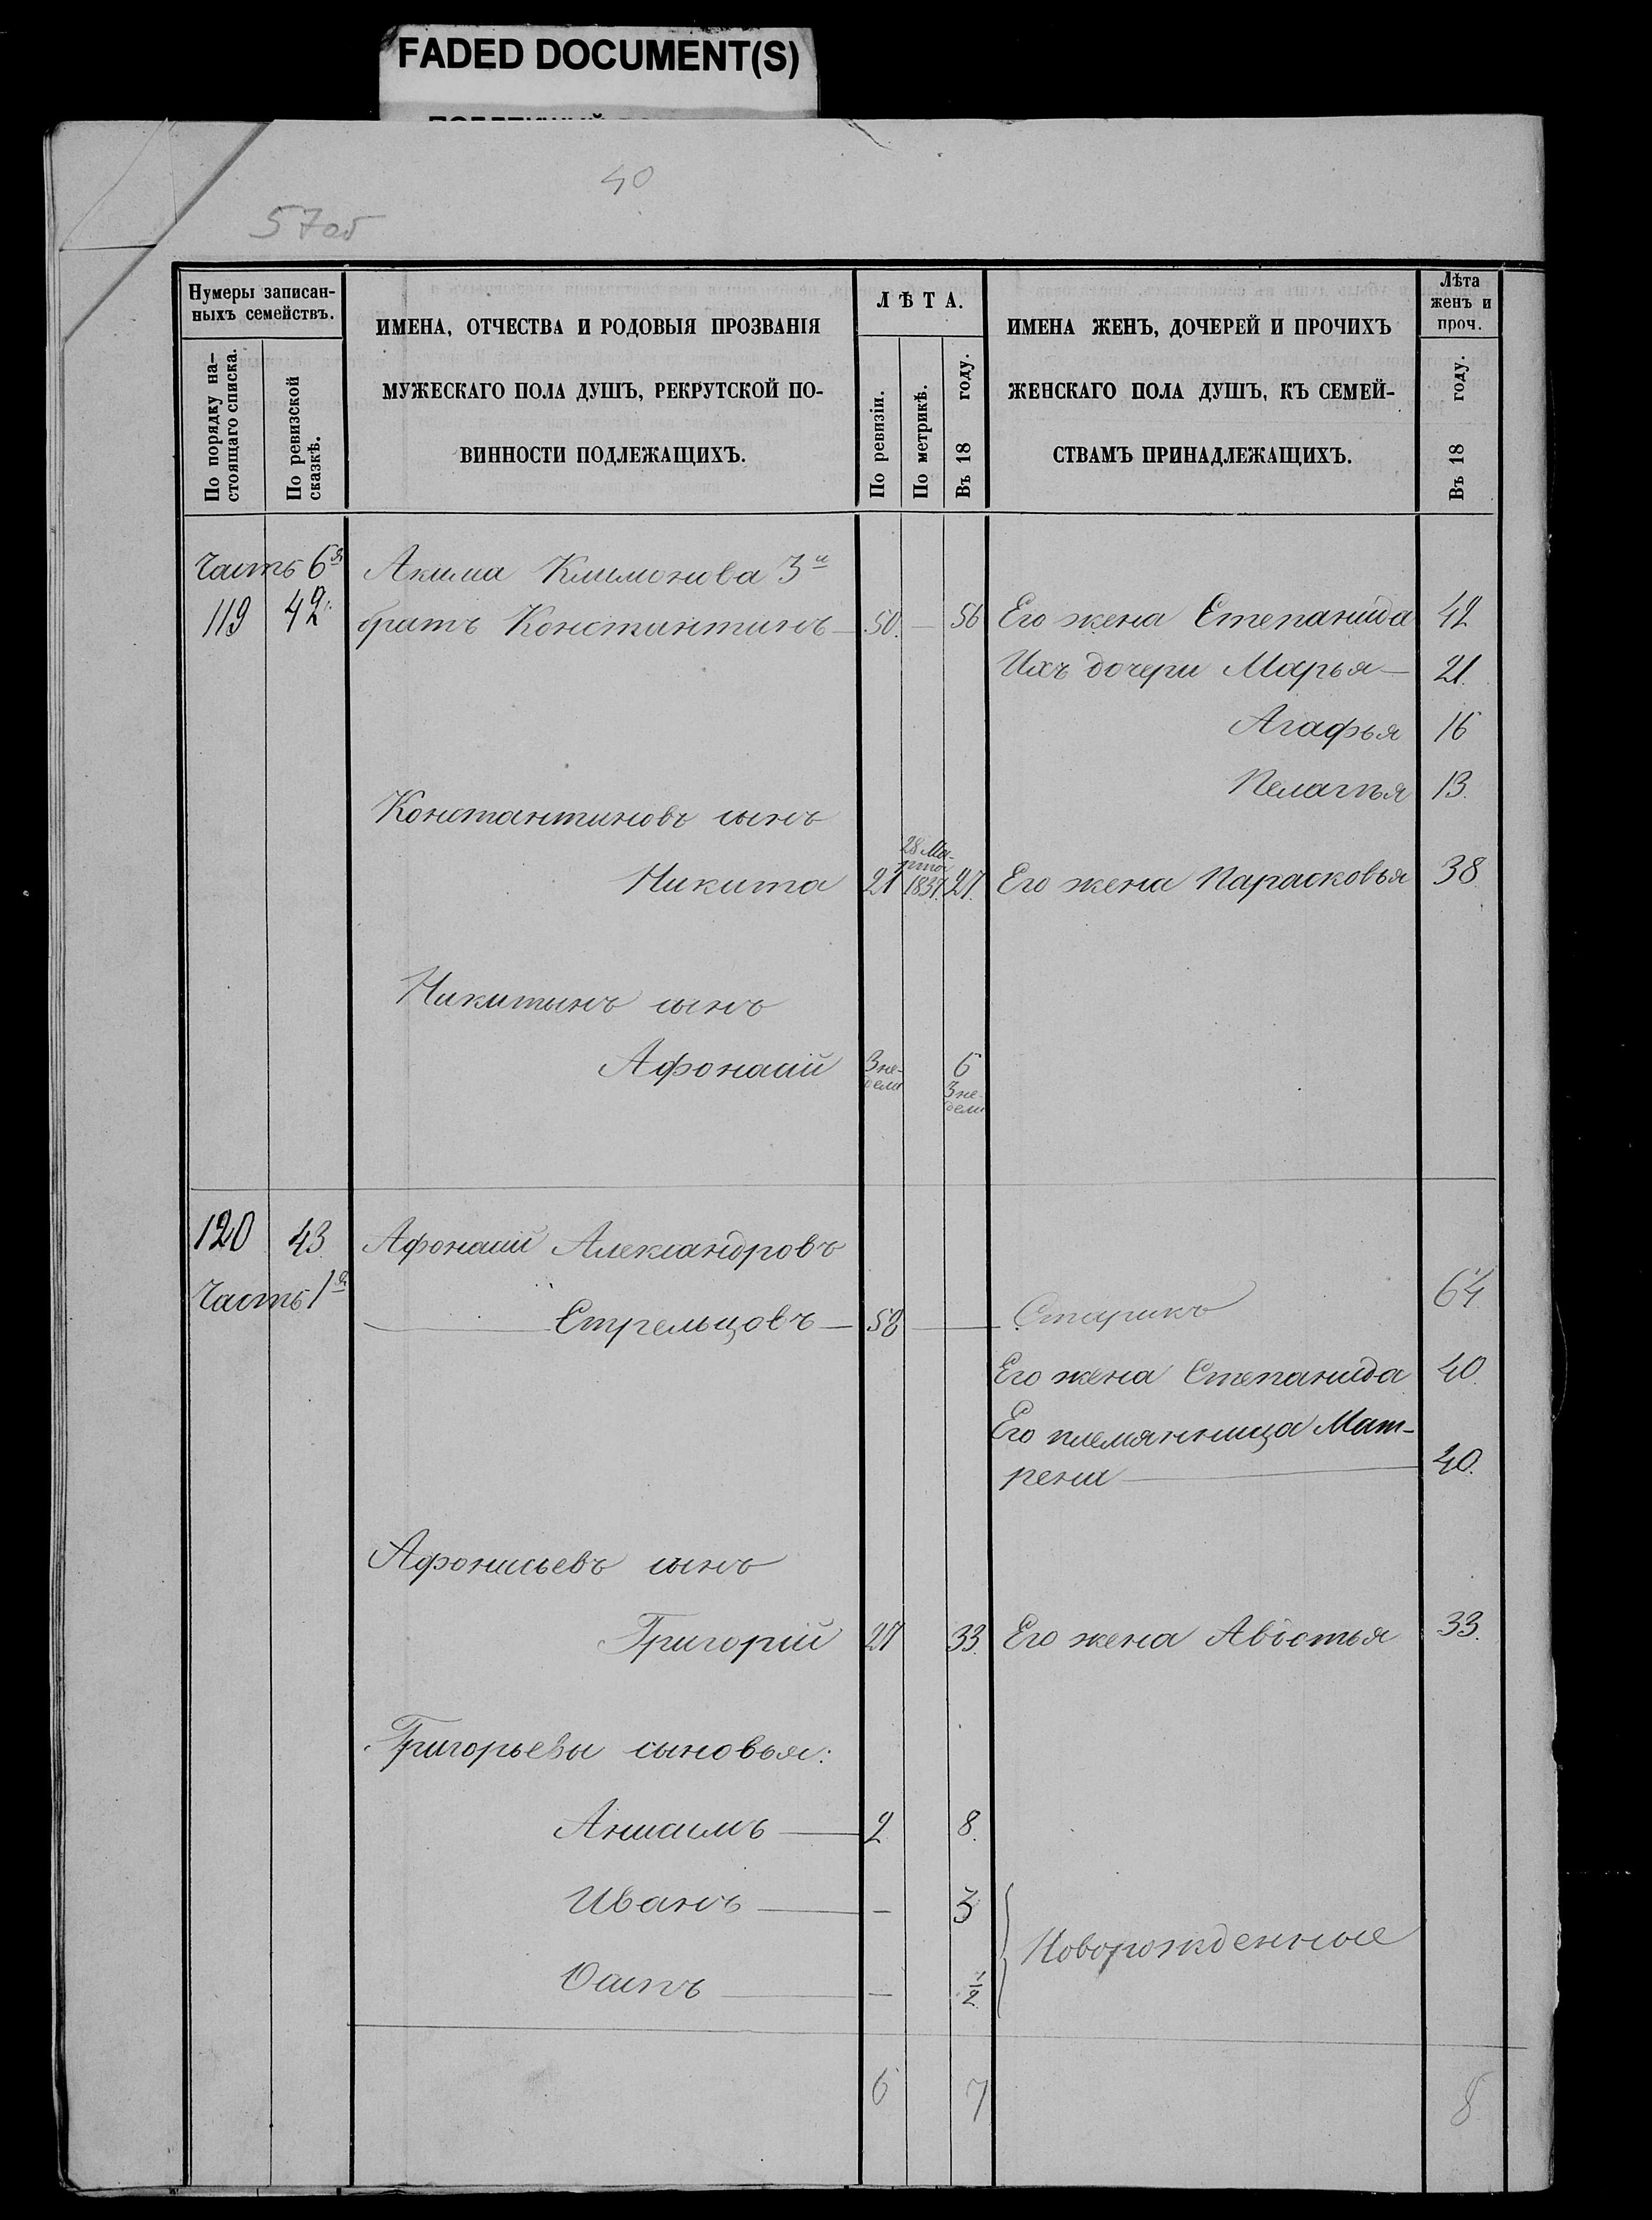 FADED DOCUMENT(S)
40
57об
Нумеры записан-
ныхъ семействъ.
По порядку на-
стоящаго списка.
По ревизской
сказкѣ.
ИМЕНА, ОТЧЕСТВА И РОДОВЫЯ ПРОЗВАНІЯ
МУЖЕСКАГО ПОЛА ДУШЪ, РЕКРУТСКОЙ ПО-
ВИННОСТИ ПОДЛЕЖАЩИХЪ.
ЛѢТА.
По ревизіи.
По метрикѣ.
Въ 18 году.
ИМЕНА ЖЕНЪ, ДОЧЕРЕЙ И ПРОЧИХЪ
ЖЕНСКАГО ПОЛА ДУШЪ, КЪ СЕМЕЙ-
СТВАМЪ ПРИНАДЛЕЖАЩИХЪ.
Лѣта
женъ и
проч.
Въ 18 году.
Часть 6я Акима Климонова 3й
119 42. братъ Константинъ — 50. — 56 Его жена Степанида 42
Ихъ дочери Марья — 21.
Агафья 16
Пелагѣя 13.
Константиновъ сынъ
Никита 21 28 Ма-
рта
1837. 27. Его жена Парасковья 38
Никитынъ сынъ
Афонасій 3 не-
дели 6
3 не-
дели
120 43. Афонасій Александровъ
Часть 1я
Стрельцовъ — 58 — Старикъ 64
Его жена Степанида 40.
Его племянница Мат-
рена — 40.
Афонасьевъ сынъ
Григорій 27 33. Его жена Авдотья 33.
Григорьевы сыновья:
Анисимъ — 2 8.
Иванъ — — 3
Осипъ — — 1/2
Новорожденные
6 7 8